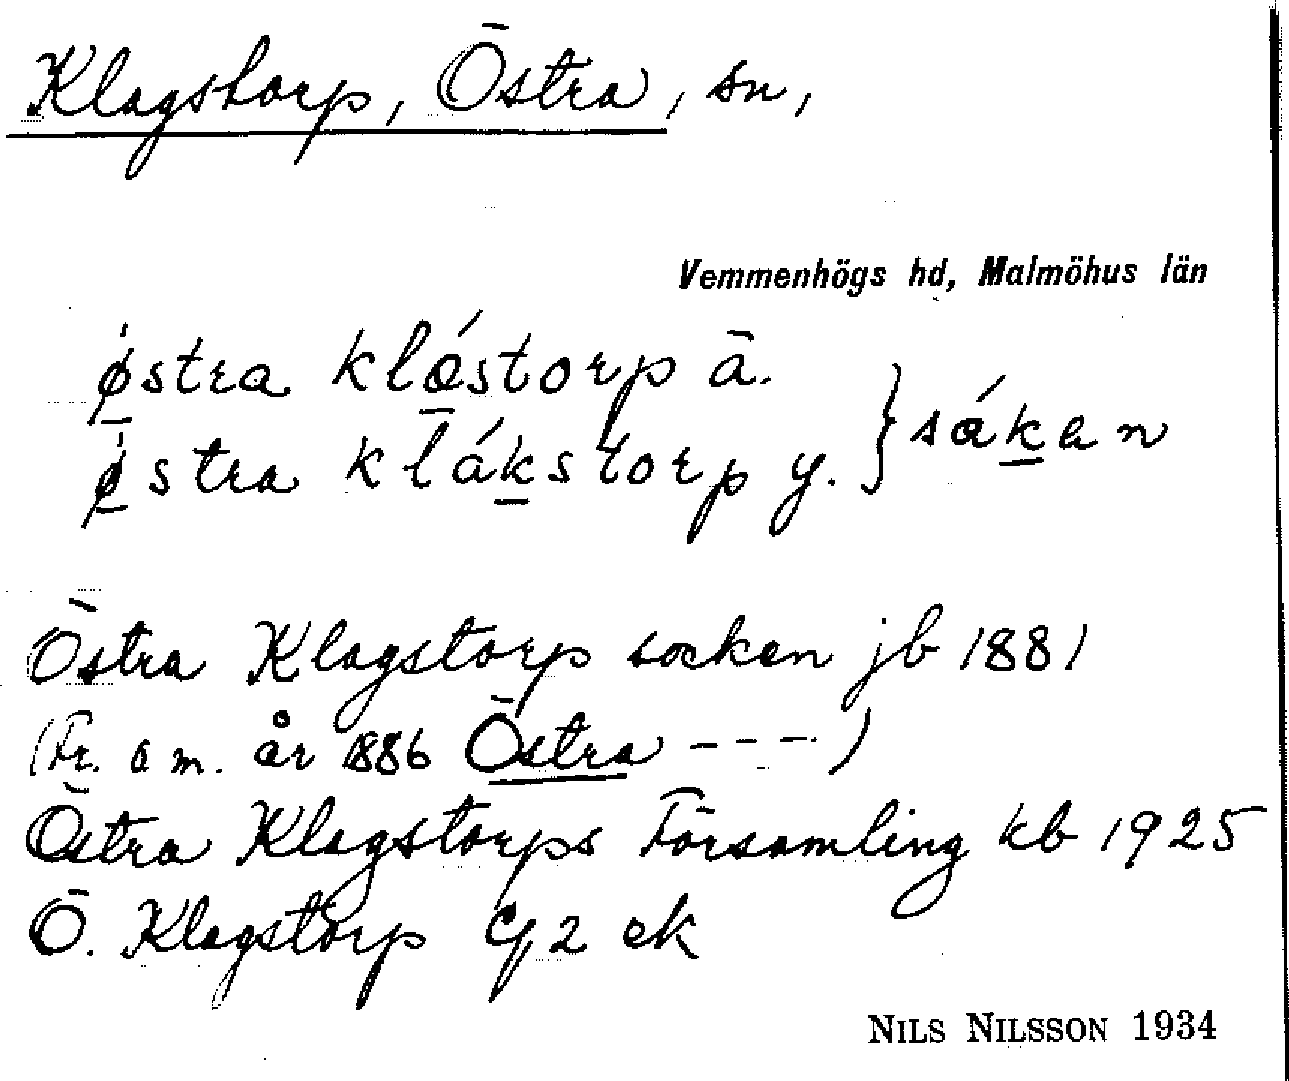 Klagstorp, Östra, sn,
Vemmenhögs hd, Malmöhus län
ø̀stra klǿstorp ä.
ø̀stra klák̲storp y. } sák̲en
Östra Klagstorp socken jb 1881
(Fr. o m. år 1886 Östra - - - )
Östra Klagstorps Församling kb 1925
Ö. Klagstorp Cg 2 ek
NILS NILSSON 1934